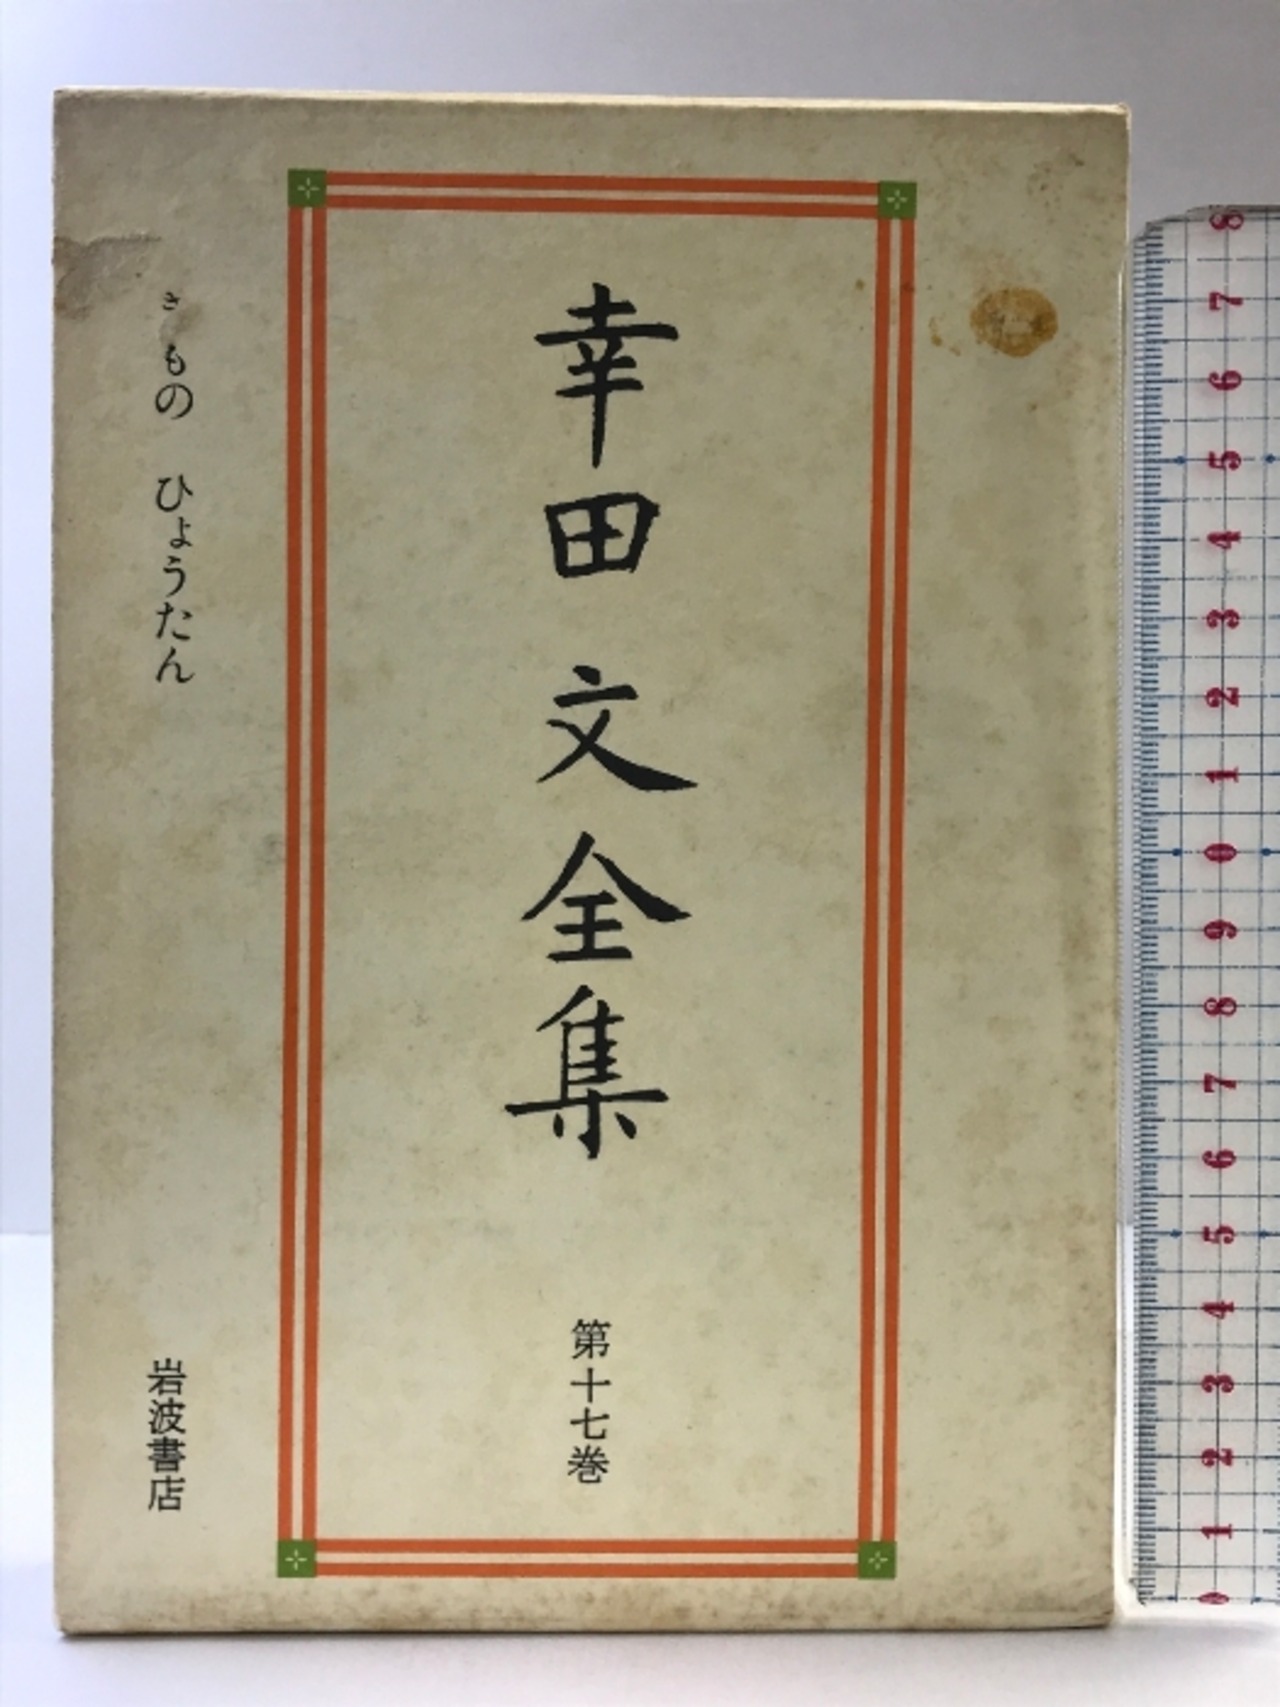 幸田文全集
第十七巻
きもの ひょうたん
岩波書店
8
7
6
5
4
3
2
1
0
9
8
7
6
5
4
3
2
1
0